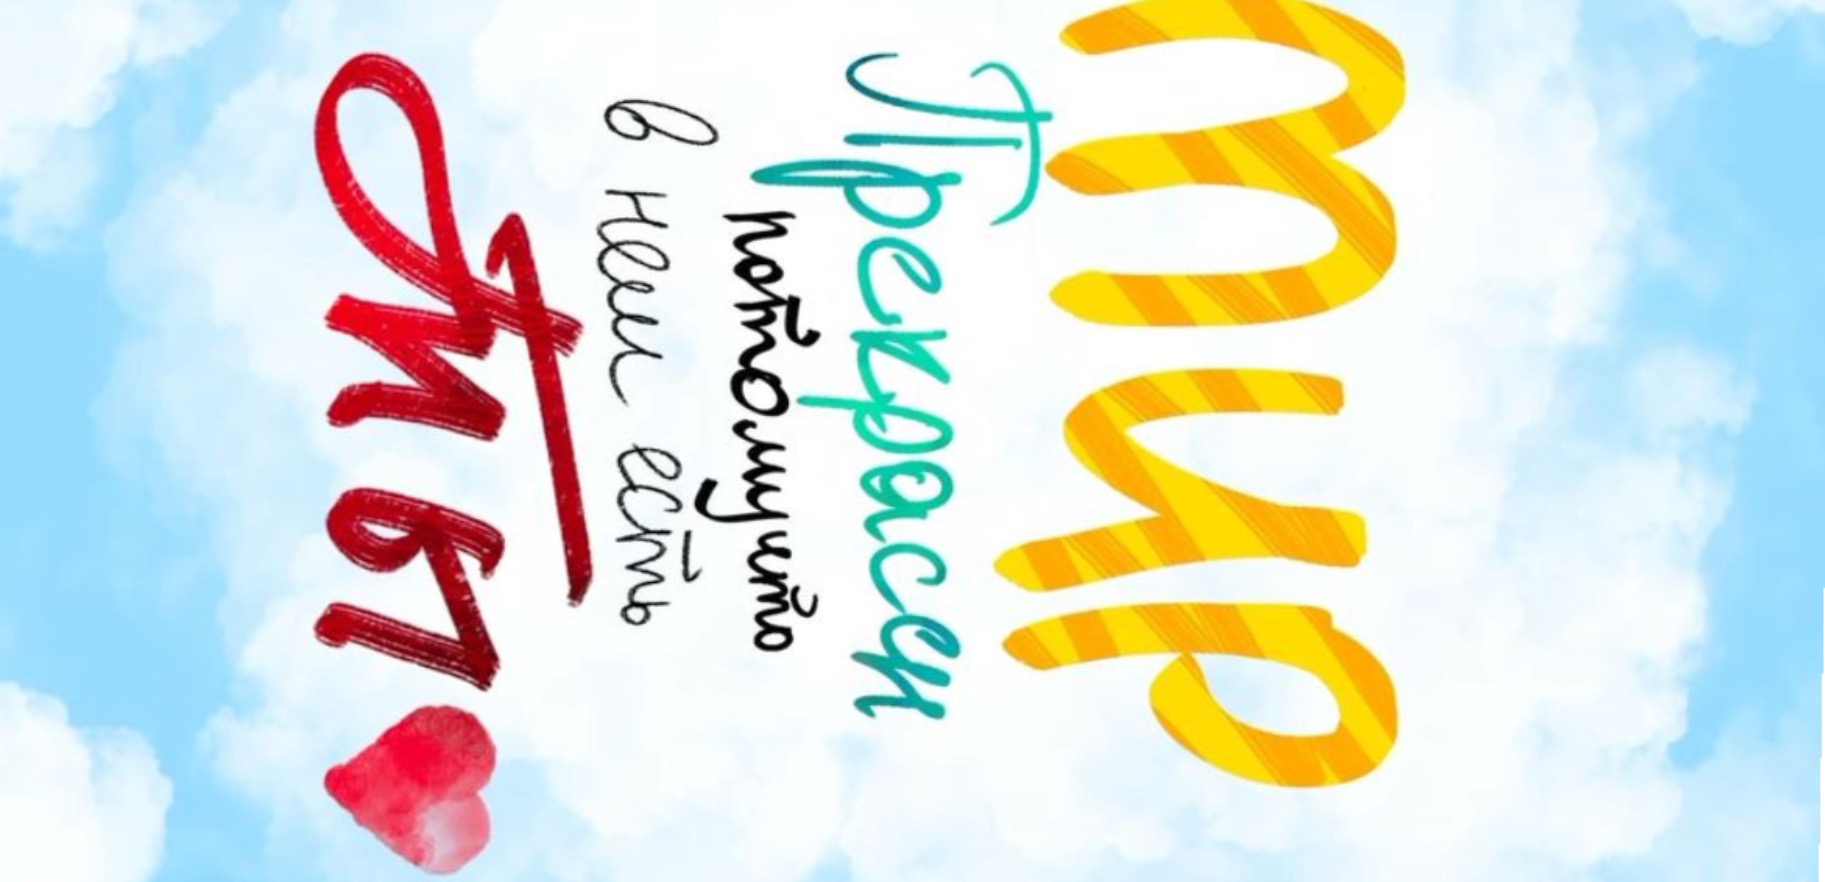 Мир
Прекрасен
потомучто
в нем есть